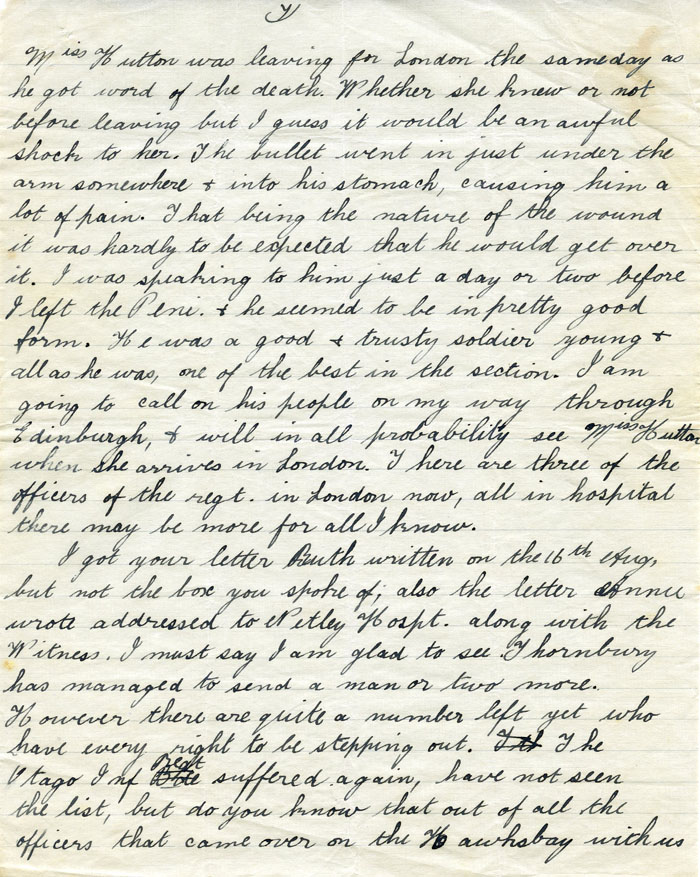 7)
Miss Hutton was leaving for London the same day as
he got word of the death. Whether she knew or not
before leaving but I guess it would be an awful
shock to her. The bullet went in just under the
arm somewhere & into his stomach, causing him a
lot of pain. That being the nature of the wound
it was hardly to be expected that he would get over
it. I was speaking to him just a day or two before
I left the Peni. & he seemed to be in pretty good
form. He was a good & trusty soldier young &
all as he was, one of the best in the section. I am
going to call on his people on my way through
Edinburgh, & will in all probability see Miss Hutton
when she arrives in London. There are three of the
officers of the regt. in London now, all in hospital
there may be more for all I know.
I got your letter Ruth written on the 16th Aug,
but not the box you spoke of; also the letter Annie
wrote addressed to Netley Hospt. along with the
Witness. I must say I am glad to see Thornbury
has managed to send a man or two more.
However there are quite a number left yet who
have every right to be stepping out. The
Otago Inf regt suffered again, have not seen
the list, but do you know that out of all the
officers that came over on the Hawksbay with us